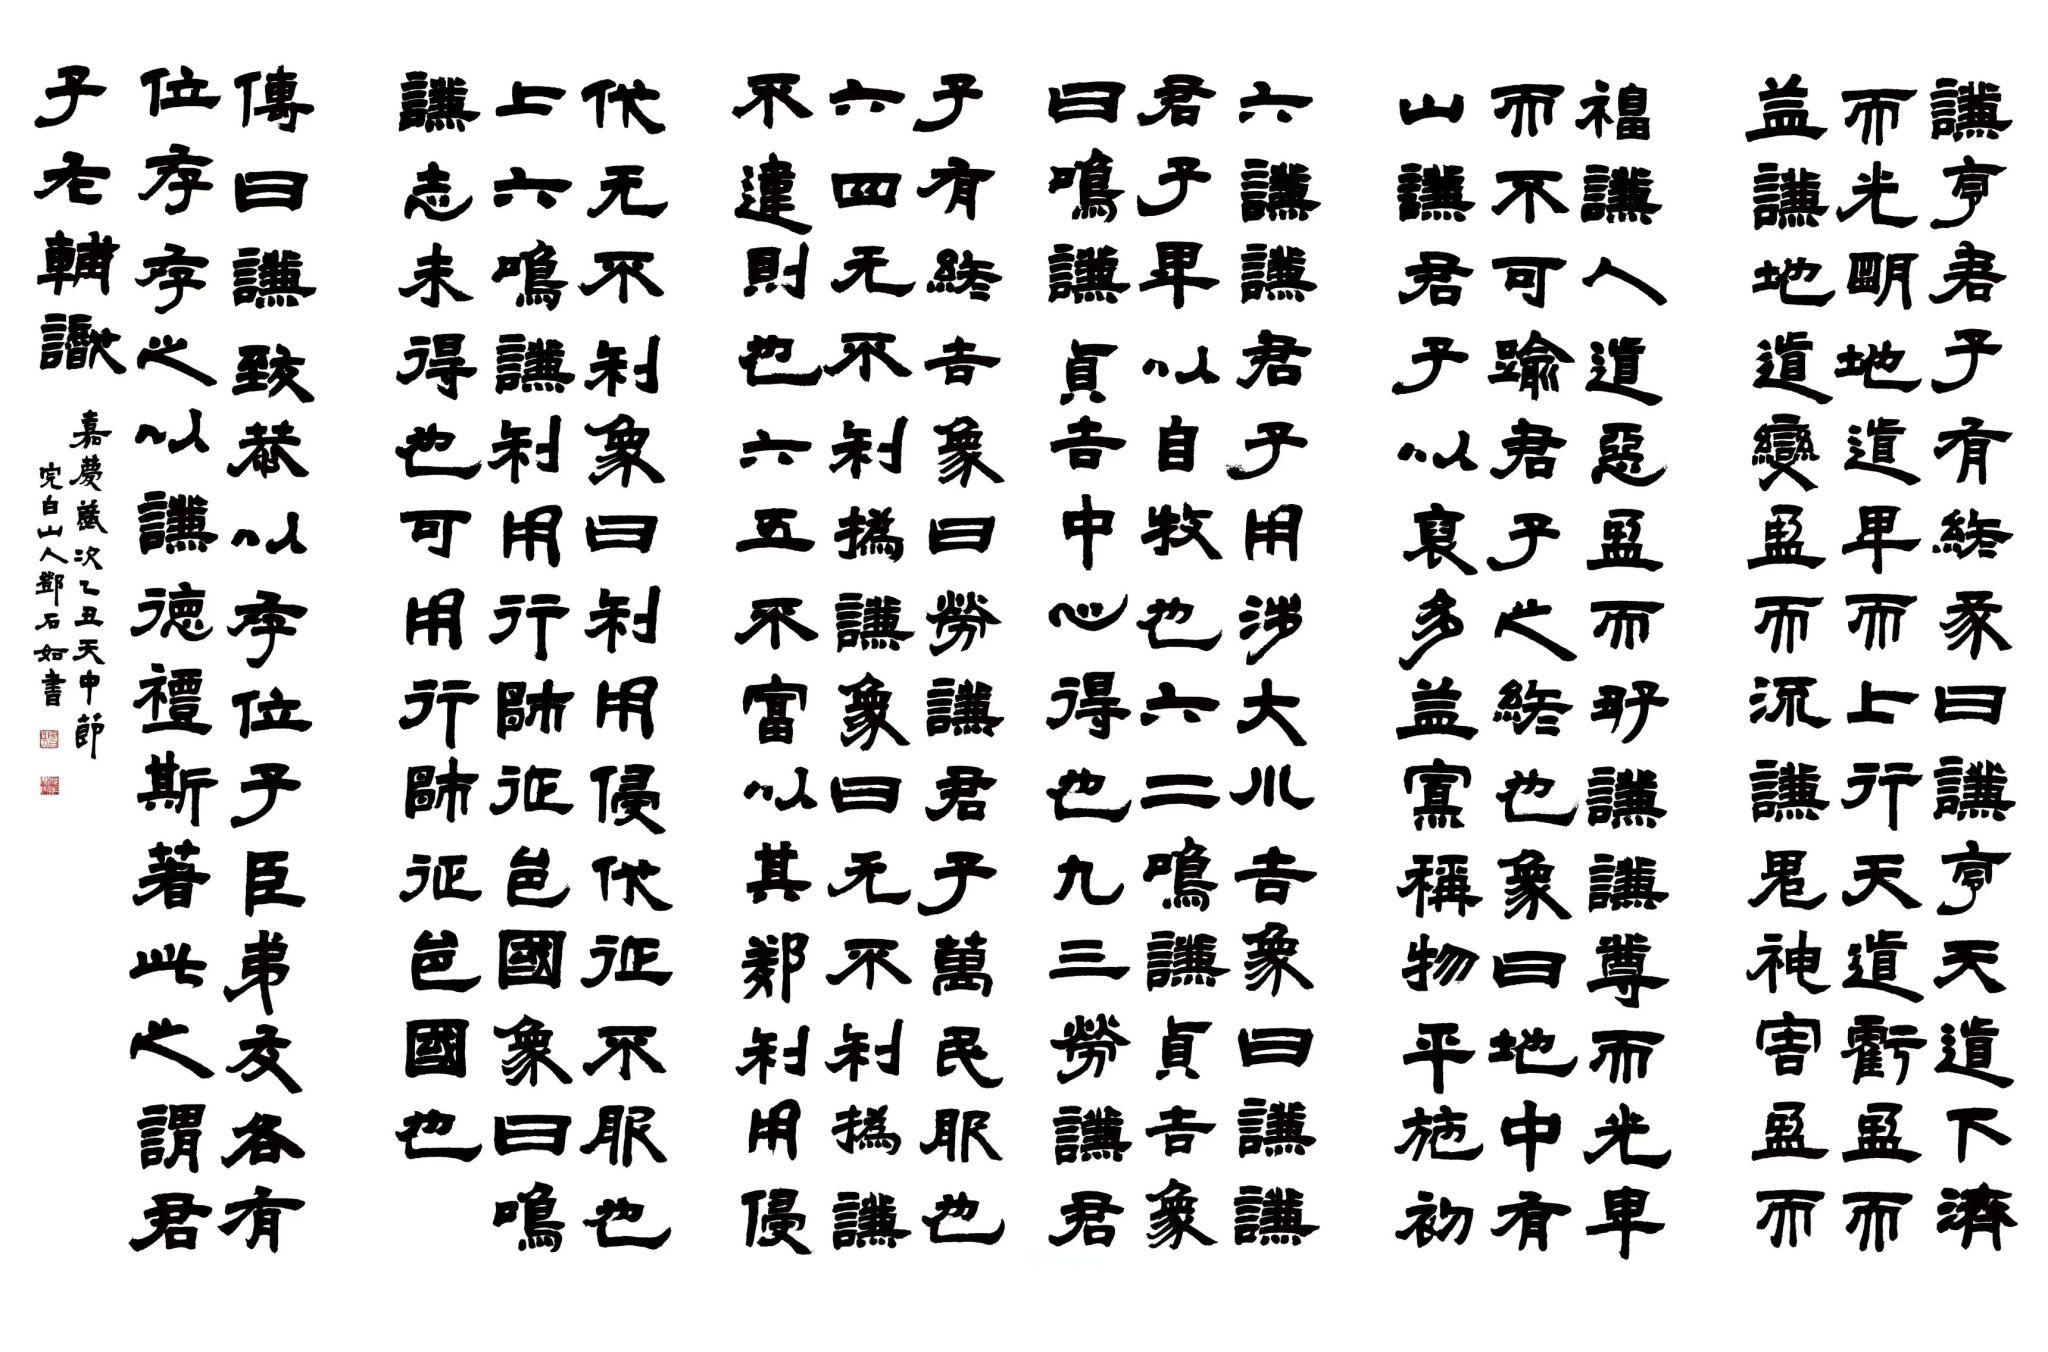 謙亨君子有終彖曰謙亨天道下濟
而光明地道卑而上行天道虧盈而
益謙地道變盈而流謙鬼神害盈而
福謙人道惡盈而好謙謙尊而光卑
而不可踰君子之終也象曰地中有
山謙君子以裒多益寡稱物平施初
六謙謙君子用涉大川吉象曰謙謙
君子卑以自牧也六二鳴謙貞吉象
曰鳴謙貞吉中心得也九三勞謙君
子有終吉象曰勞謙君子萬民服也
六四无不利撝謙象曰无不利撝謙
不違則也六五不富以其鄰利用侵
伐无不利象曰利用侵伐征不服也
上六鳴謙利用行師征邑國象曰鳴
謙志未得也可用行師征邑國也
傳曰謙致恭以存位子臣弟友各有
位存存之以謙德禮斯著此之謂君
子左輔
嘉慶歲次乙丑天中節
完白山人鄧石如書